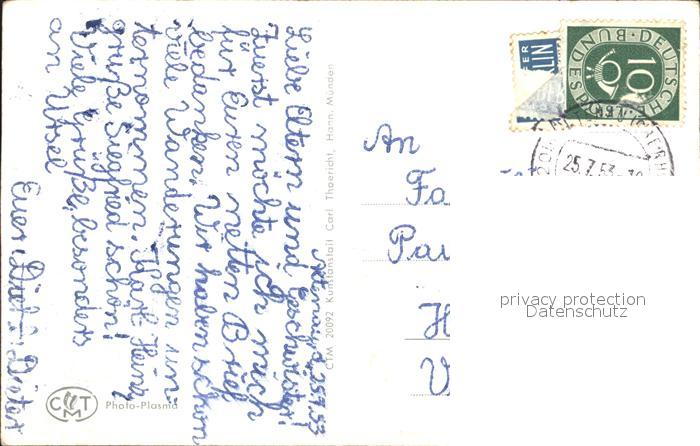 25.7.53
Liebe Eltern und Geschwister!
Zuerst möchte ich mich
für Euren netten Brief
bedanken. Wir haben schon
viele Wanderungen un-
ternommen. Karl Heinz
grüße Siegfred schon!
Viele Grüße, besonders
an Ursel
Euer Dieter Dieter
CTM 20092 Kunstanstalt Carl Thoericht, Hann. Münden
CTM
Photo-Plasma
BERLIN
DEUTSCHE BUNDESPOST
10
25.7.53
An
Fa
Pau
H
V
privacy protection
Datenschutz